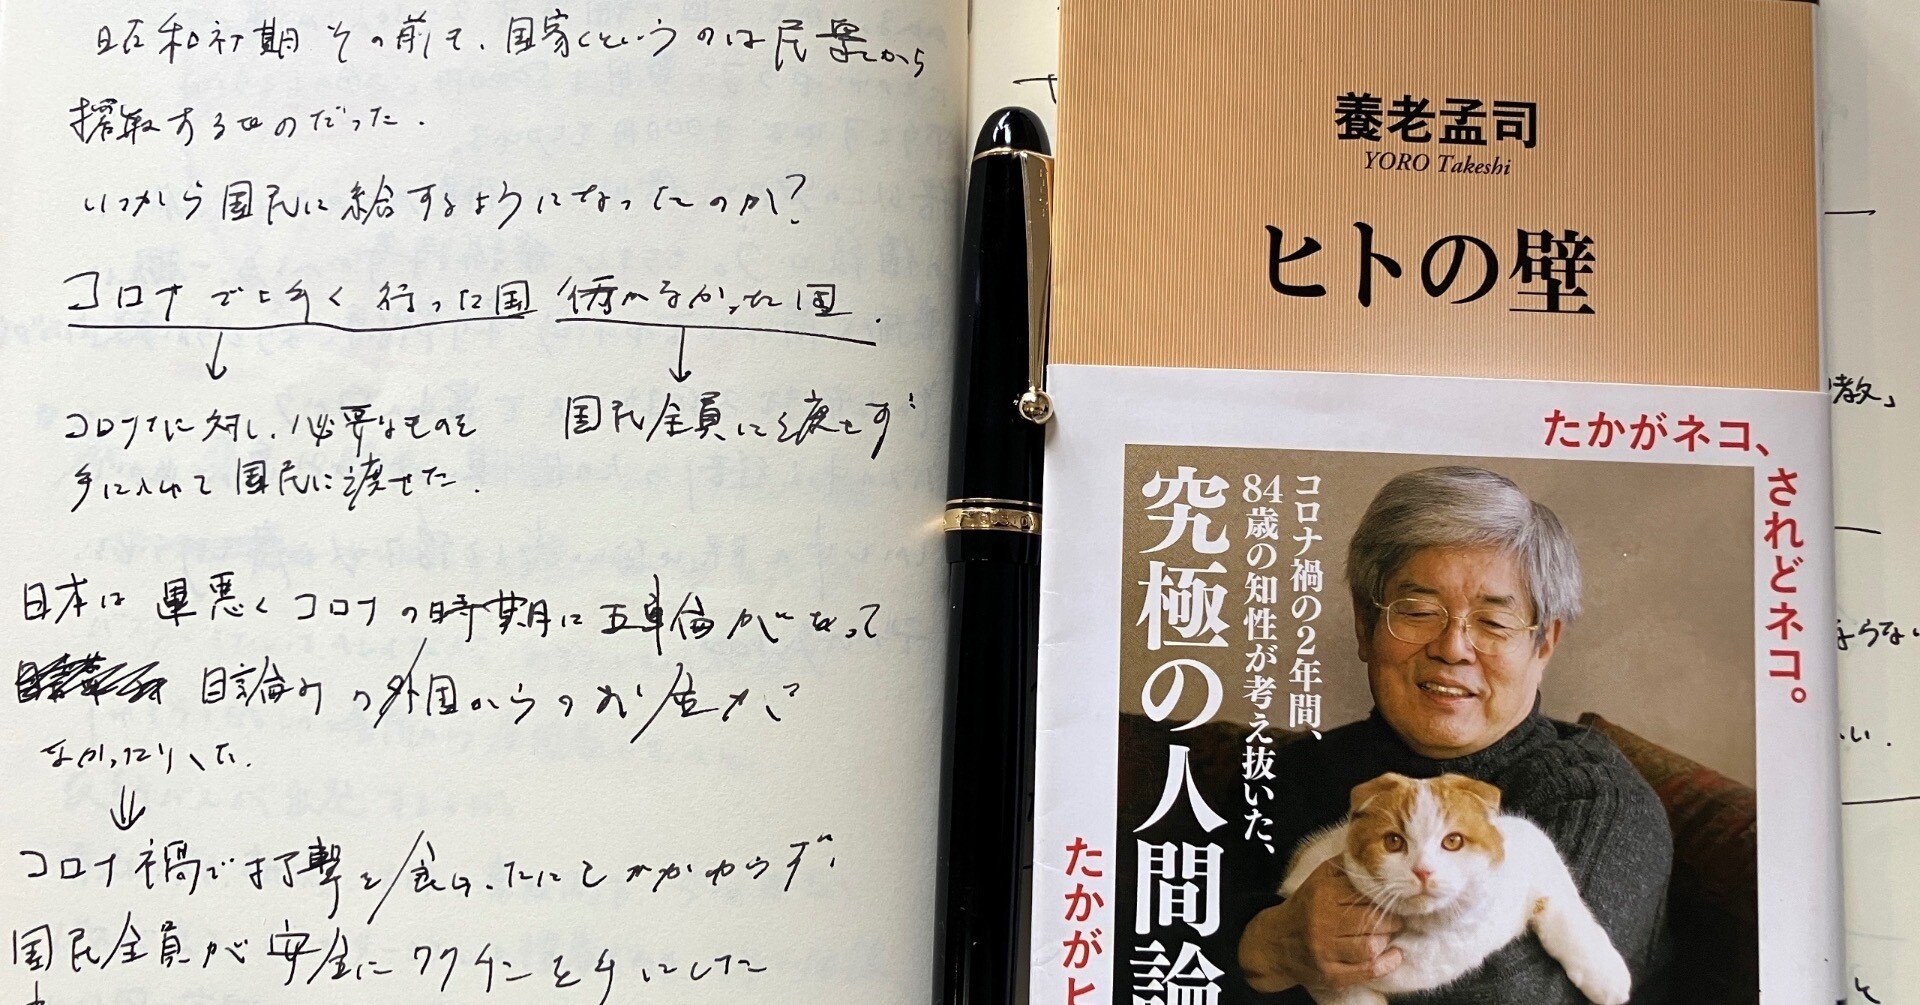 昭和初期その前も、国家というのは民衆から
搾取するものだった.
いつから国民に給するようになったのか?
コロナで上手く行った国 行かなかった国.
↓ ↓
コロナに対し、必要なものを 国民全員に渡せず
手に入れて国民に渡せた.
日本は運悪くコロナの時期に五輪があって
目論みの外国からのお金が
なかったりした.
↓
コロナ禍で打撃を食らったにもかかわらず
国民全員が安全にワクチンを手にした
養老孟司
YORO Takeshi
ヒトの壁
たかがネコ、
されどネコ。
コロナ禍の2年間、
84歳の知性が考え抜いた、
究極の人間論
たかがヒ
教」
ならない
い.
と